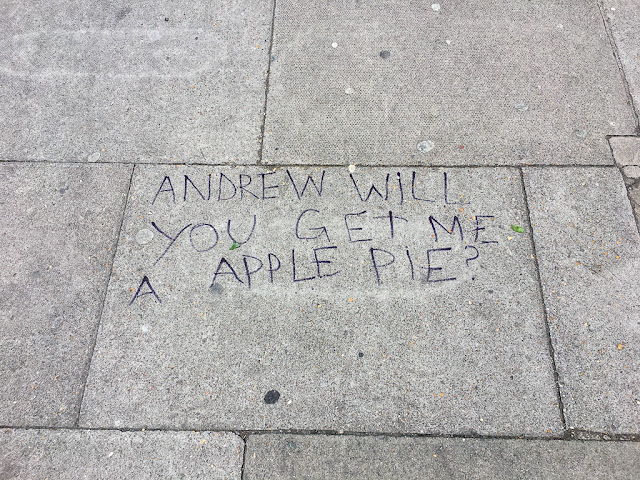 ANDREW WiLL
YOU GEt ME
A APPLE PIE?